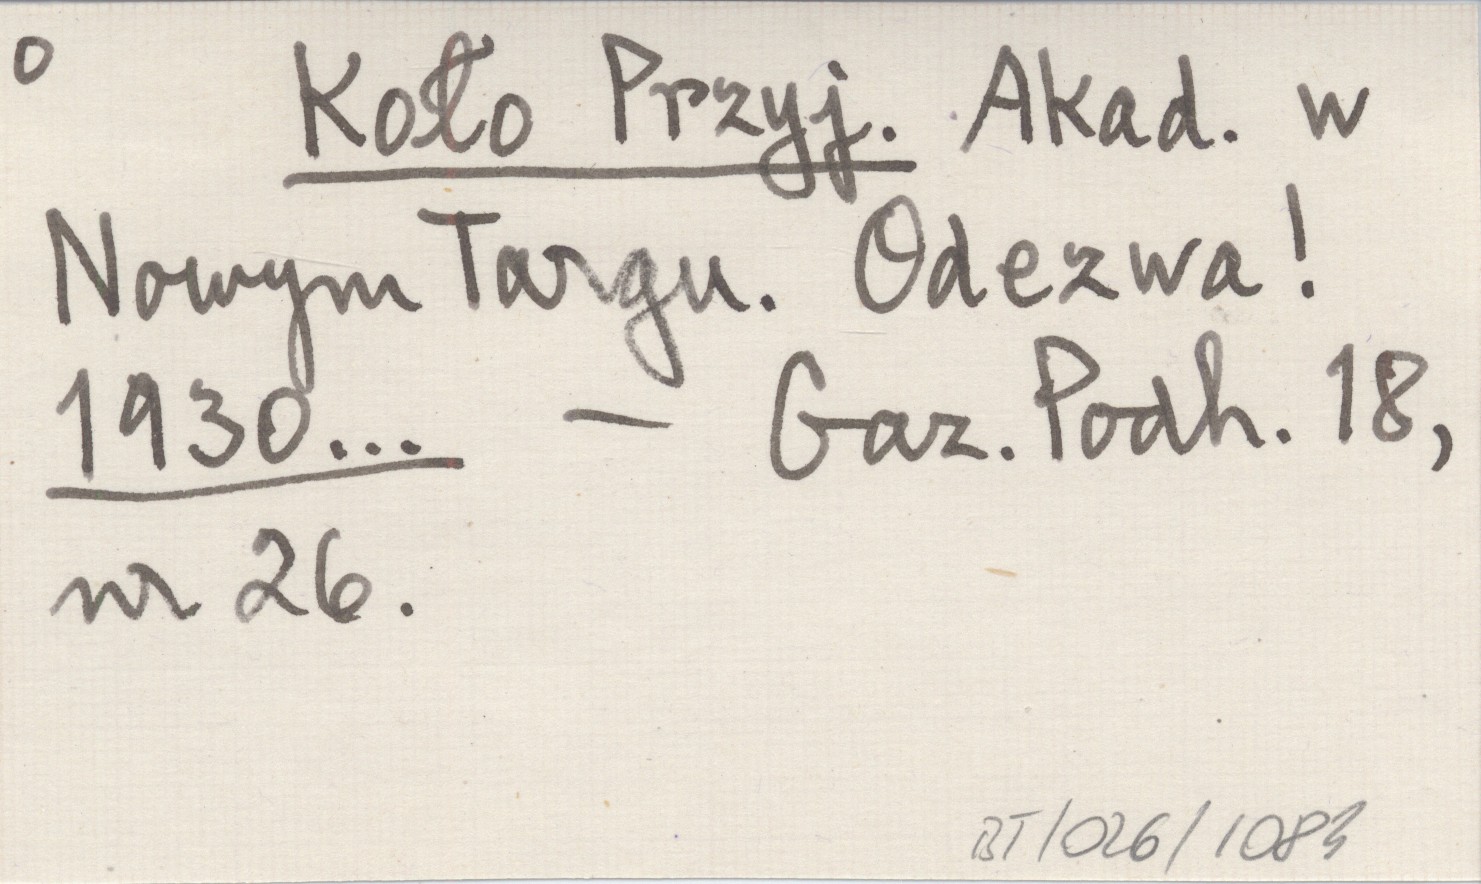 o Koło Przyj. Akad. w
Nowym Targu. Odezwa!
1930... — Gaz. Podh. 18,
nr 26.
BT/026/1083